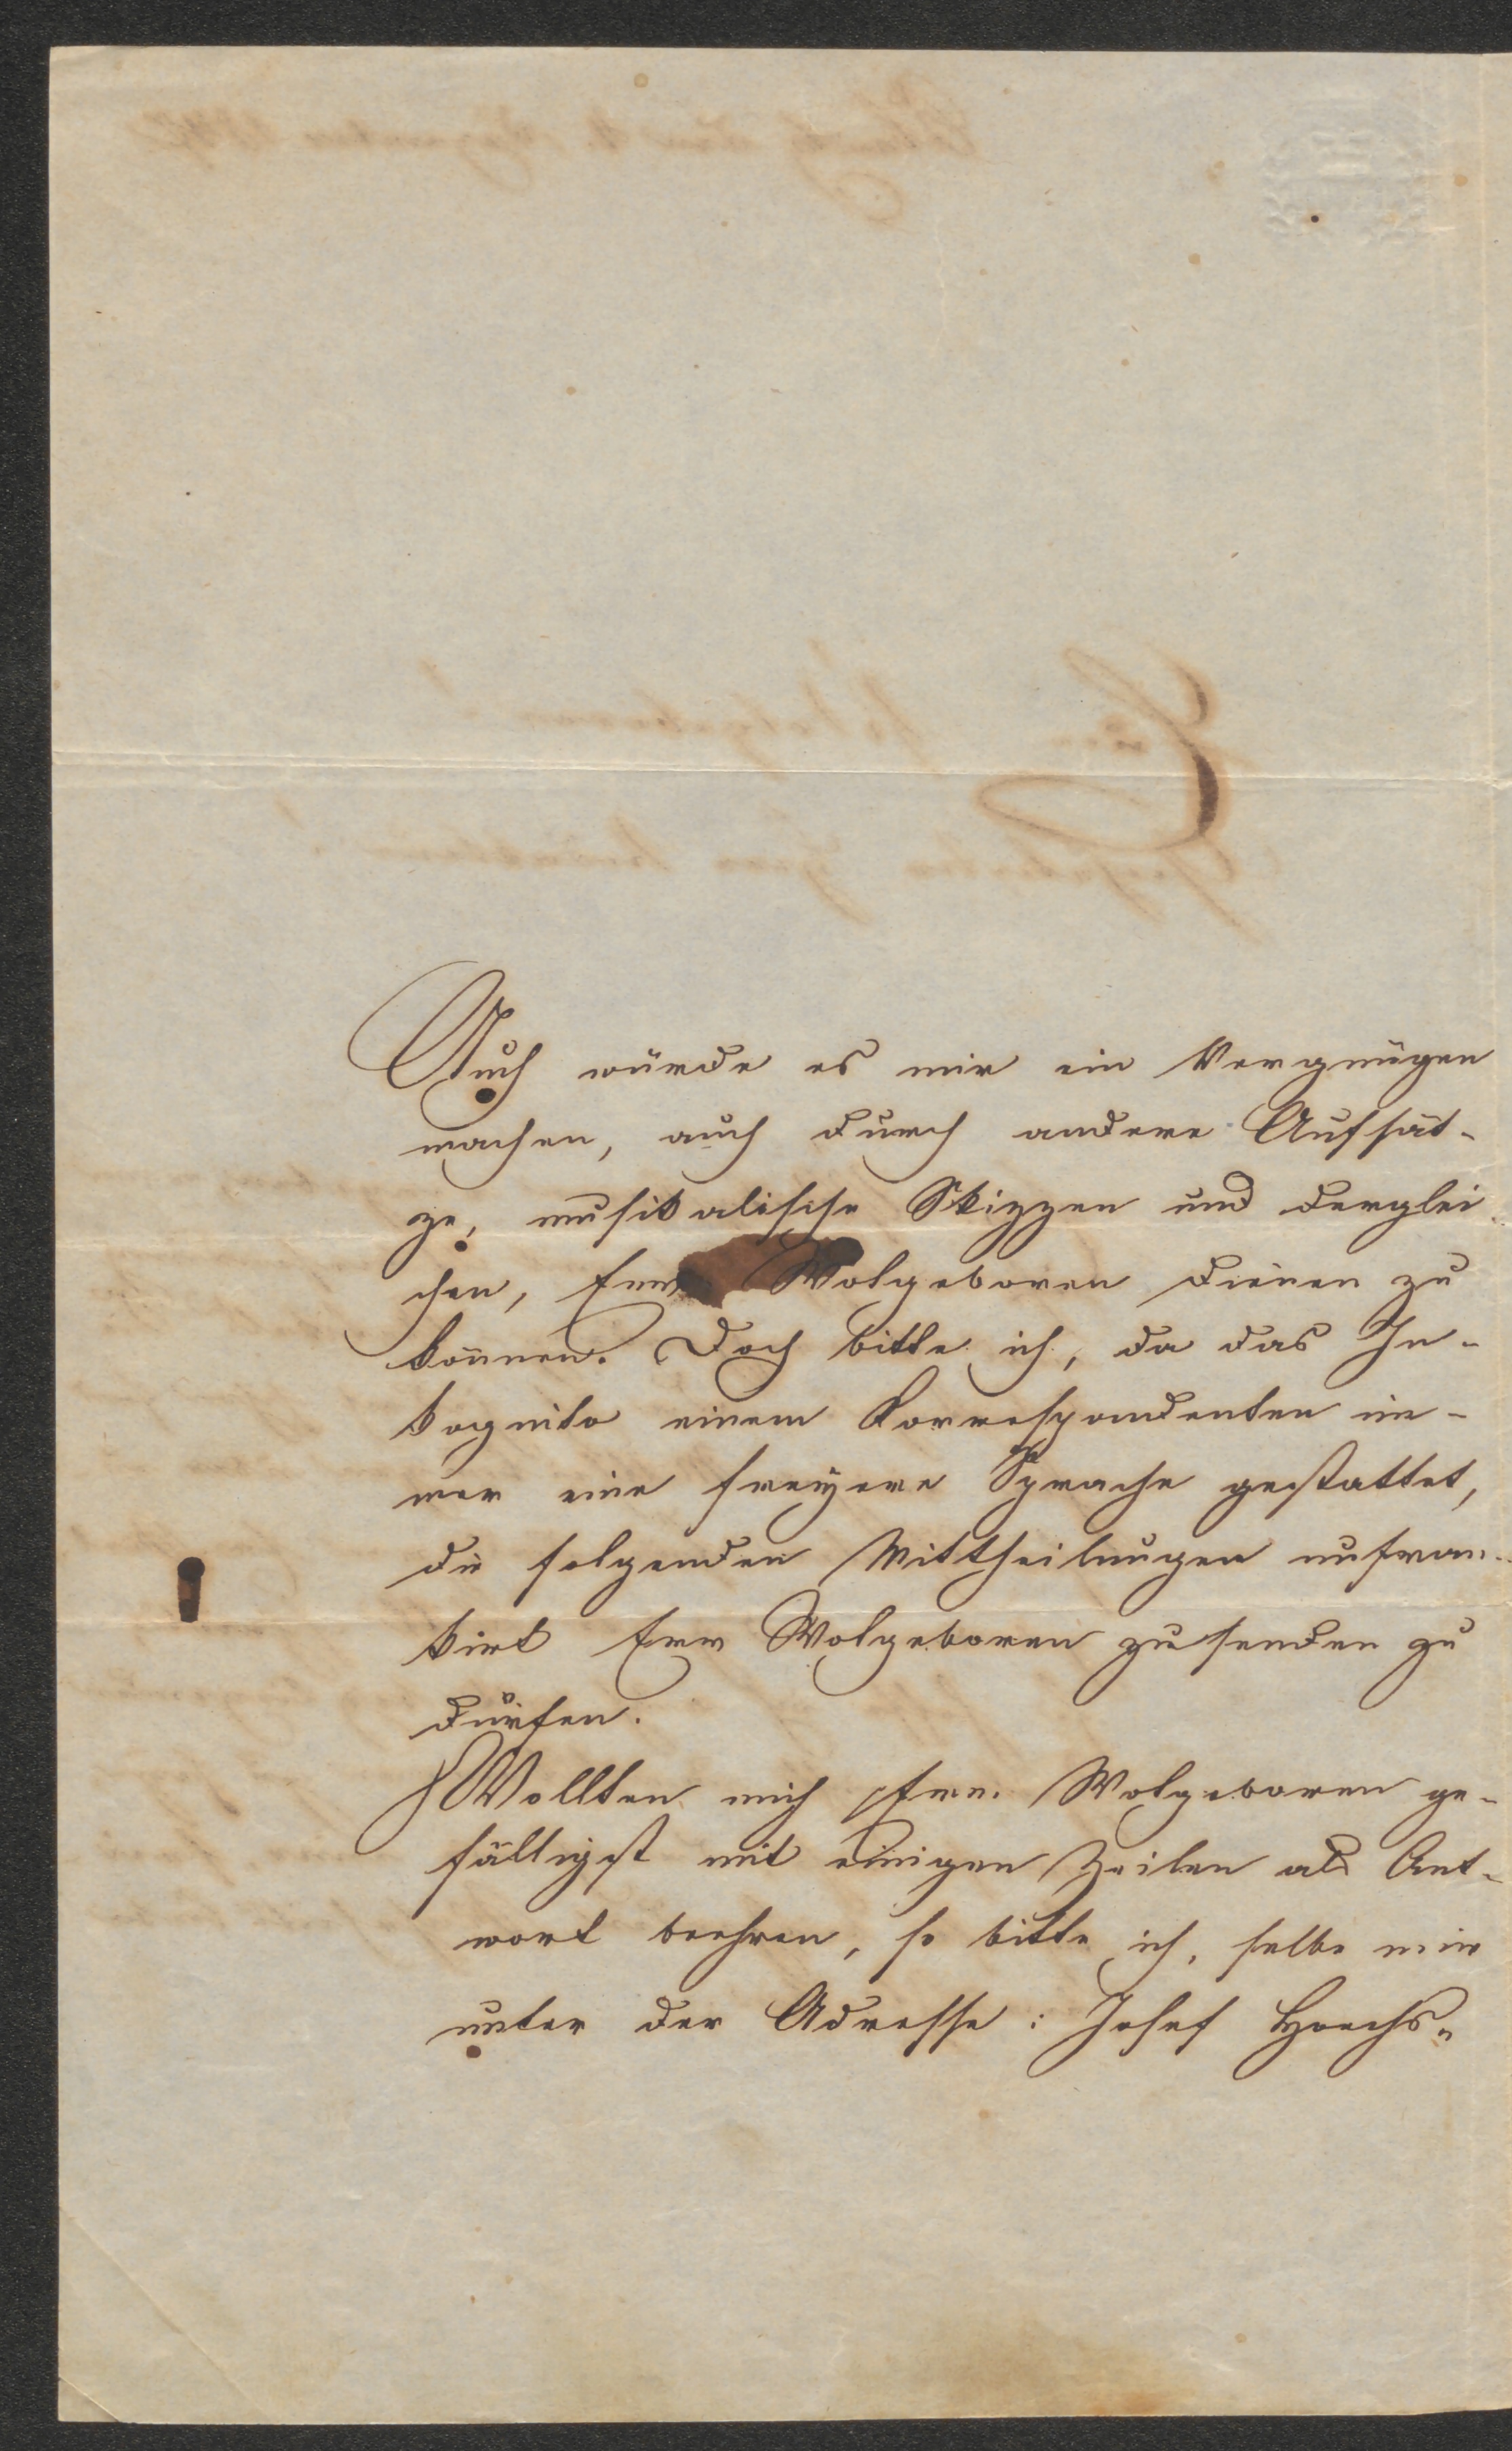 Auch würde es mir ein Vergnügen
machen, auch durch andere Aufsät-
ze, musikalische Skizzen und derglei
chen, Euer Wolgeboren dienen zu
können. Doch bitte ich, da das In-
kognito einem Korrespondenten im-
mer eine freyere Sprache gestattet,
die folgenden Mittheilungen unfran-
kirt Euer Wolgeboren zusenden zu
dürfen.
Wollten mich Euer. Wolgeboren ge-
fälligst mit einigen Zeilen als Ant-
wort beehren, so bitte ich, selbe mir
unter der Adresse: Josef